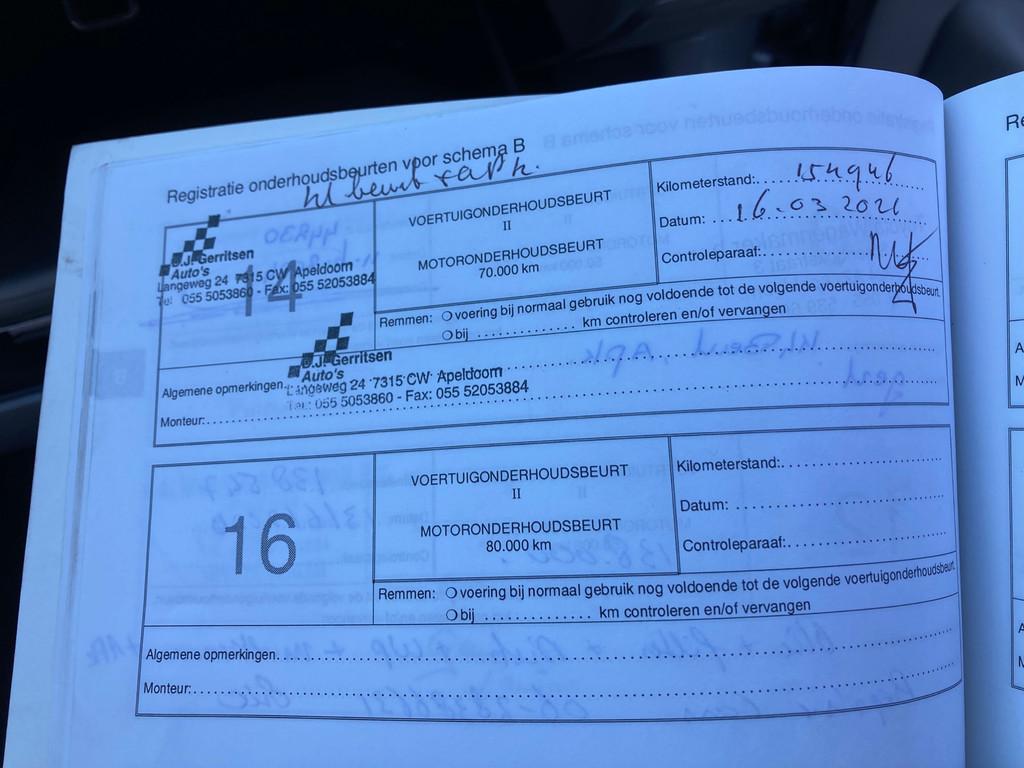 Registratie onderhoudsbeurten voor schema B
kl beurt + apk.
G.J. Gerritsen
Auto's
Langeweg 24 7315 CW Apeldoorn
Tel: 055 5053860 - Fax: 055 52053884
14
VOERTUIGONDERHOUDSBEURT
II
MOTORONDERHOUDSBEURT
70.000 km
Kilometerstand: 154946
Datum: 16.03 2021
Controleparaaf:
Remmen: voering bij normaal gebruik nog voldoende tot de volgende voertuigonderhoudsbeurt.
bij ............. km controleren en/of vervangen
G.J. Gerritsen
Auto's
Algemene opmerkingen Langeweg 24 7315 CW Apeldoorn
Tel: 055 5053860 - Fax: 055 52053884
Monteur:
16
VOERTUIGONDERHOUDSBEURT
II
MOTORONDERHOUDSBEURT
80.000 km
Kilometerstand:
Datum:
Controleparaaf:
Remmen: voering bij normaal gebruik nog voldoende tot de volgende voertuigonderhoudsbeurt.
bij ............. km controleren en/of vervangen
Algemene opmerkingen
Monteur:
Re